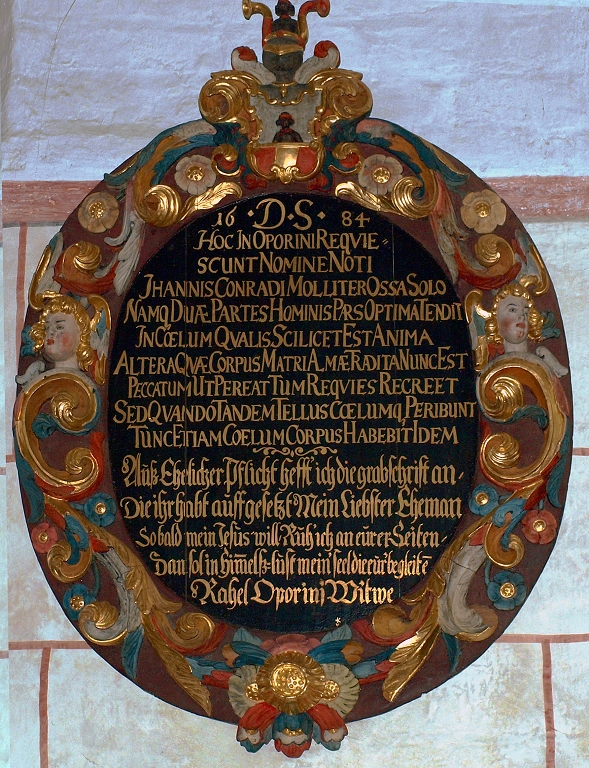 16 · D · S · 84
HOC IN OPORINI REQVIE=
SCUNT NOMINE NOTI
JHANNIS CONRADI MOLLITER OSSA SOLO
NAMQ DUÆ PARTES HOMINIS PARS OPTIMA TENDIT
IN CŒLUM QVALIS SCILICET EST ANIMA
ALTERA QVÆ CORPUS MATRI ALMÆ TRADITA NUNC EST
PECCATUM UT PEREAT TUM REQVIES RECREET
SED QVANDO TANDEM TELLUS CŒLUMQ, PERIBUNT
TUNC ETIAM COELUM CORPUS HABEBIT IDEM
Auß Ehelicher Pflicht hefft ich die grabschrift an-
Die ihr habt auff gesetzt Mein Liebster Eheman
So bald mein Jesus will Ruh ich an eurer Seiten-
Dan sol in Himelß-lust mein seel die eur begleitē
Rahel Oporini Witwe